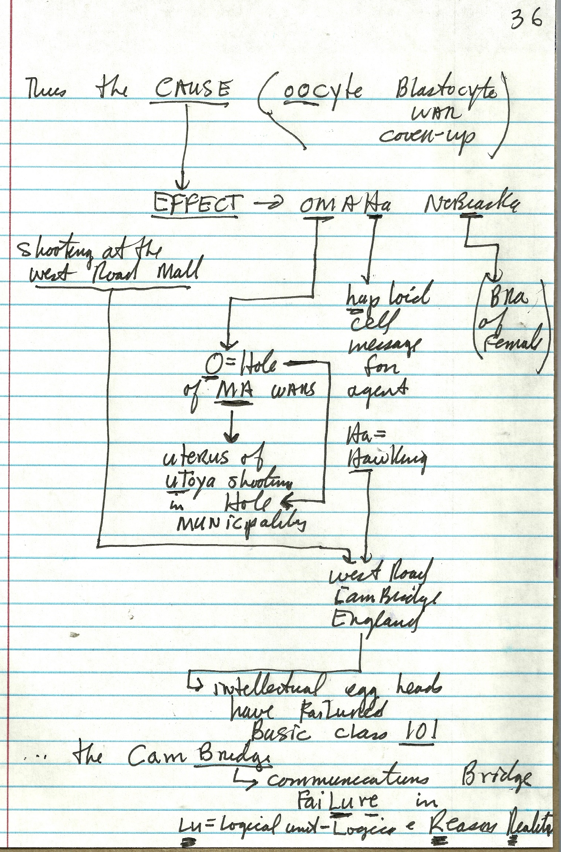 36
Thus the CAUSE (oocyte Blastocyte
WAR
cover-up)
EFFECT → OMAHa Nebraska
shooting at the
west Road Mall
haploid
cell
message
for
agent
(BRa
of
Female)
O=Hole
of MA WARS
Ha=
Hawking
uterus of
utoya shooting
in Hole
MUNicipality
west Road
CamBridge
England
intellectual egg heads
have FaiLured
Basic class 101
... the Cam Bridge
communications Bridge
FaiLure in
Lu=Logical unit-Logic e Reason Reality